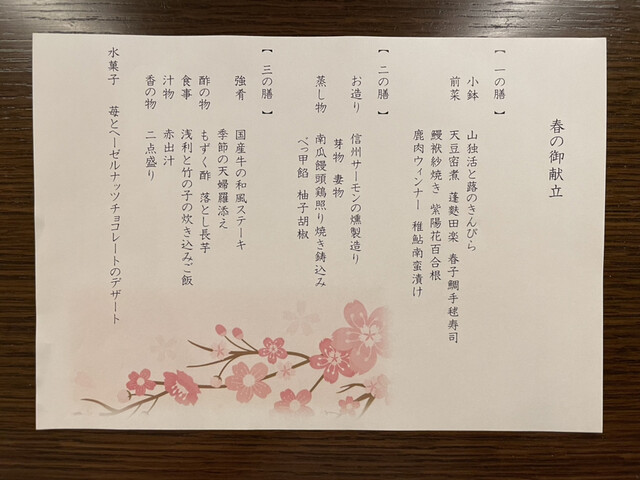 春の御献立
【 一の膳 】
小鉢 山独活と蕗のきんぴら
前菜 天豆密煮 蓬麩田楽 春子鯛手毬寿司
鰻袱紗焼き 紫陽花百合根
鹿肉ウィンナー 稚鮎南蛮漬け
【 二の膳 】
お造り 信州サーモンの燻製造り
芽物 妻物
蒸し物 南瓜饅頭鶏照り焼き鋳込み
べっ甲餡 柚子胡椒
【 三の膳 】
強肴 国産牛の和風ステーキ
季節の天婦羅添え
酢の物 もずく酢 落とし長芋
食事 浅利と竹の子の炊き込みご飯
汁物 赤出汁
香の物 二点盛り
水菓子 苺とヘーゼルナッツチョコレートのデザート